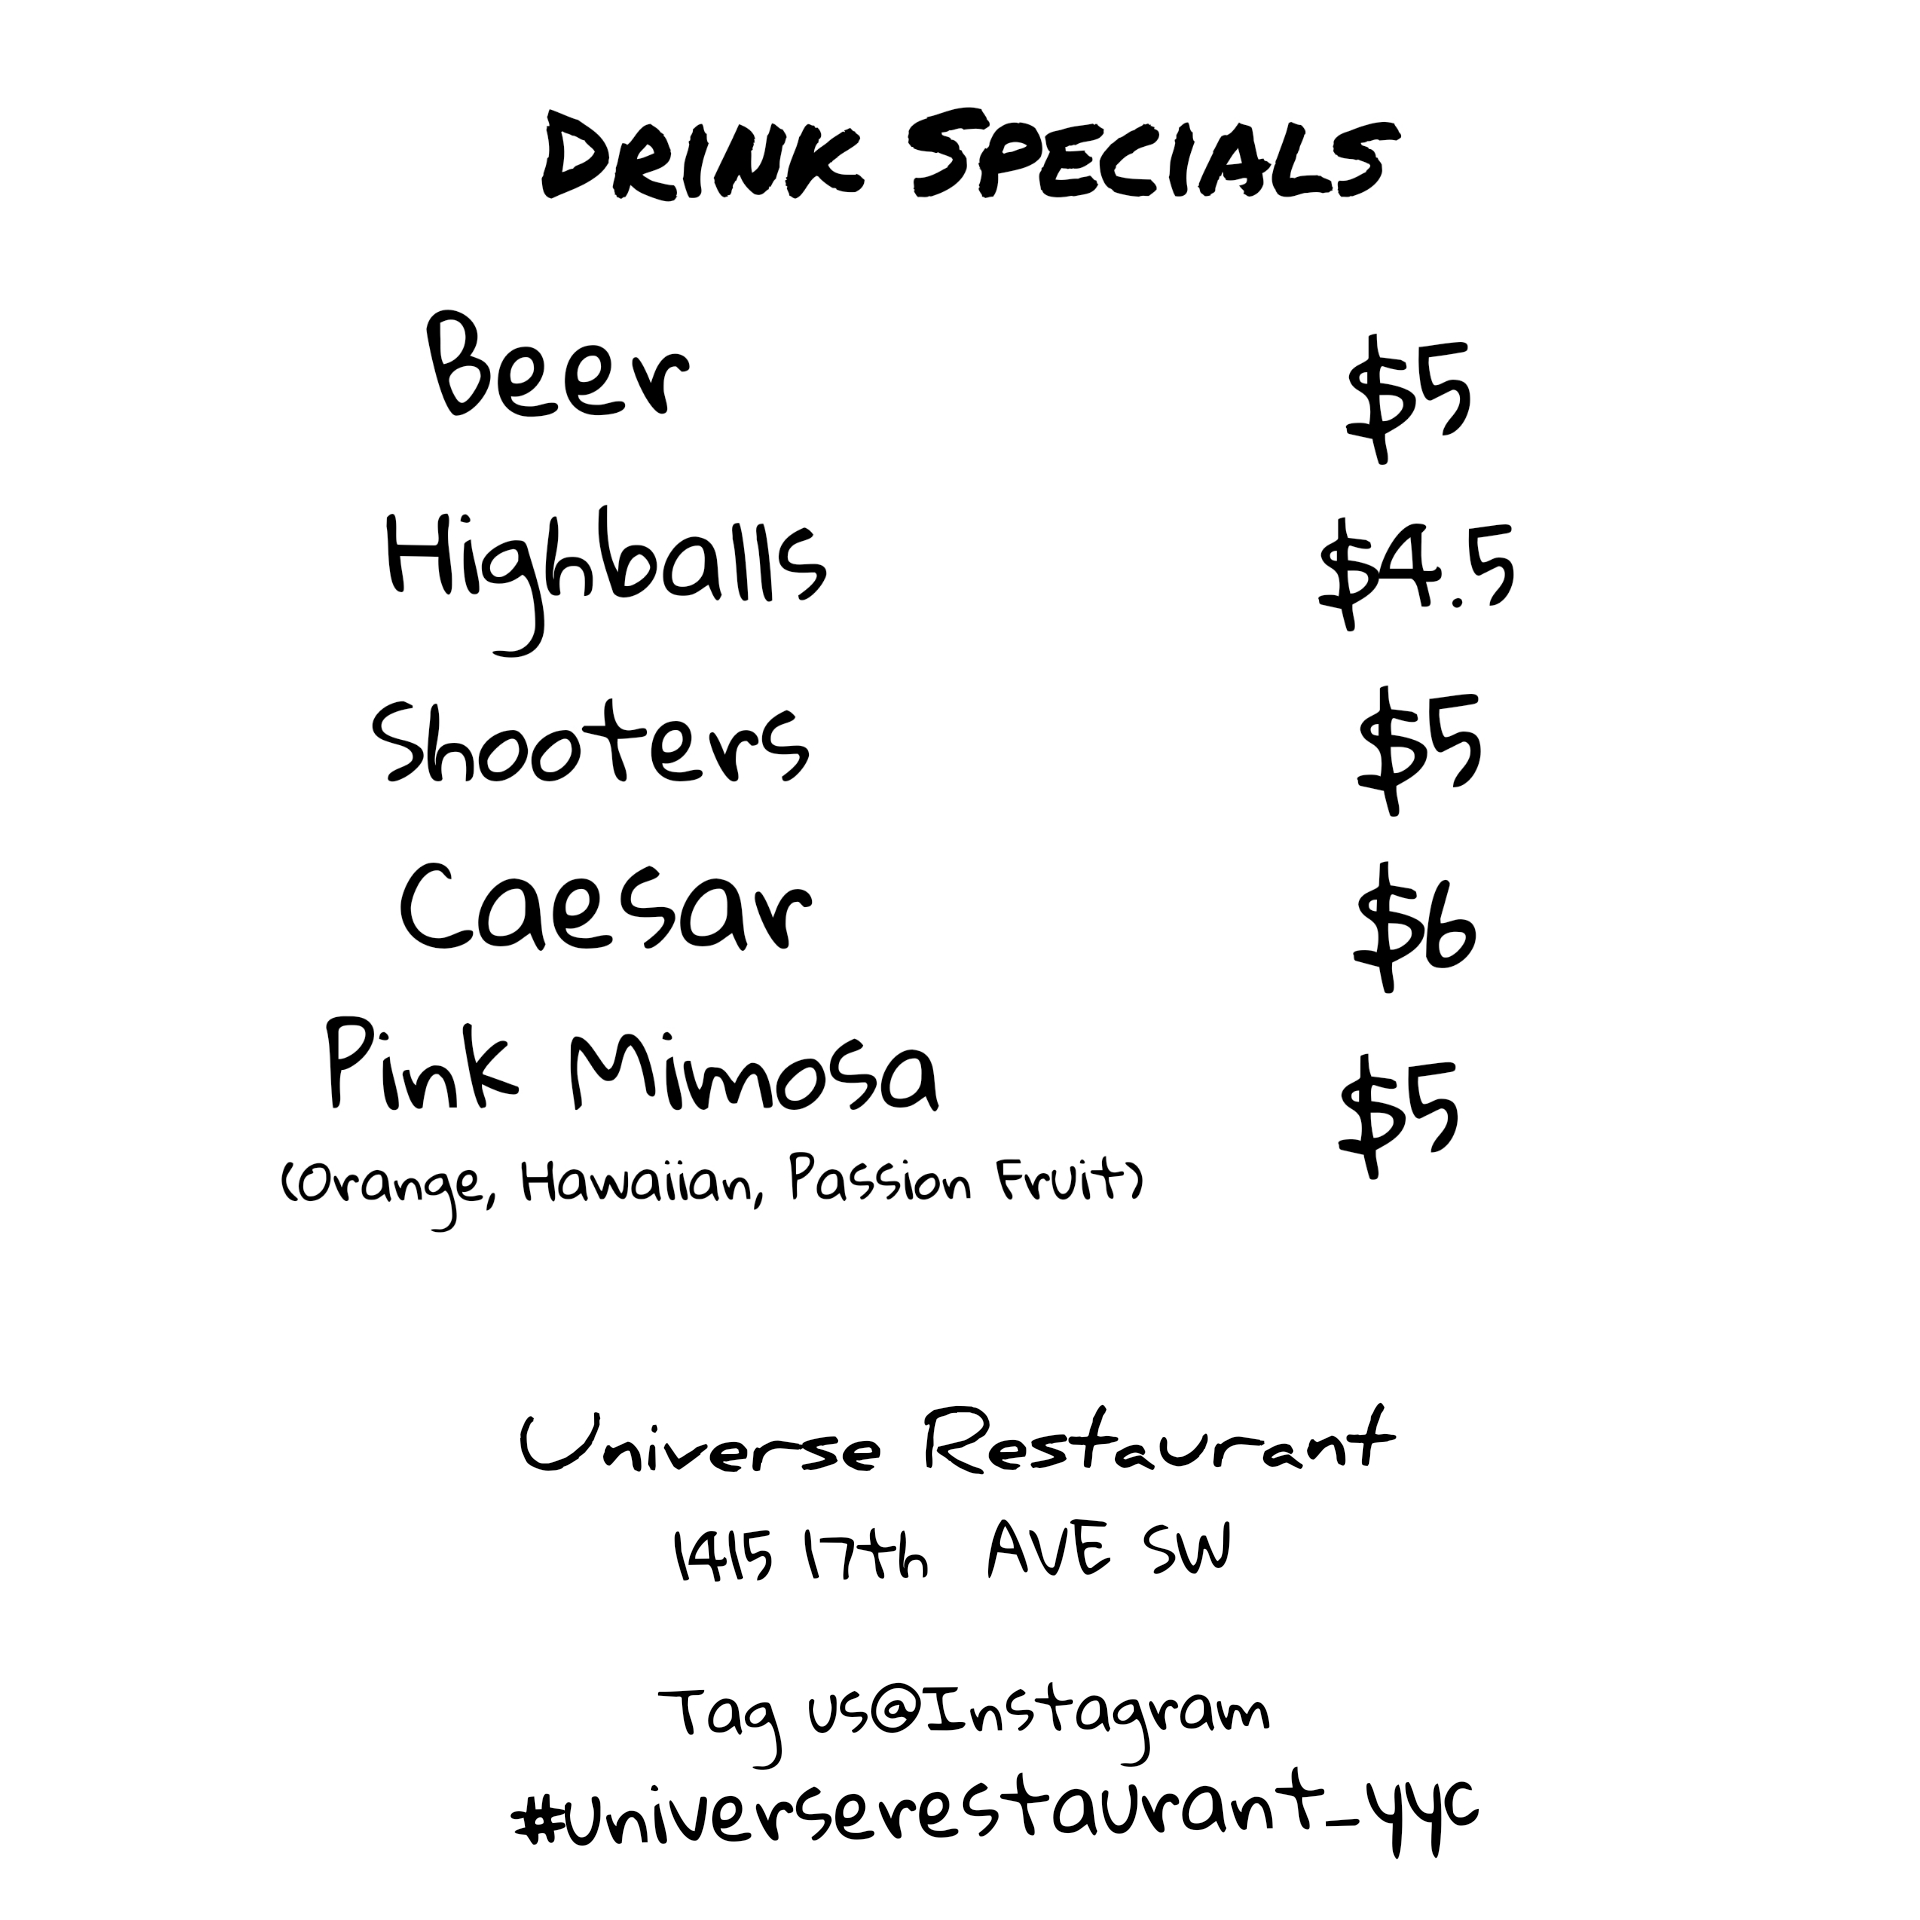 DRINK SPECIALS
Beer $5
Highballs $4.5
Shooters $5
Caesar $6
Pink Mimosa $5
(Orange, Hawaiian, Passion Fruit)
Universe Restaurant
1415 17th AVE SW
Tag us@Instagram
#universerestaurant_yyc